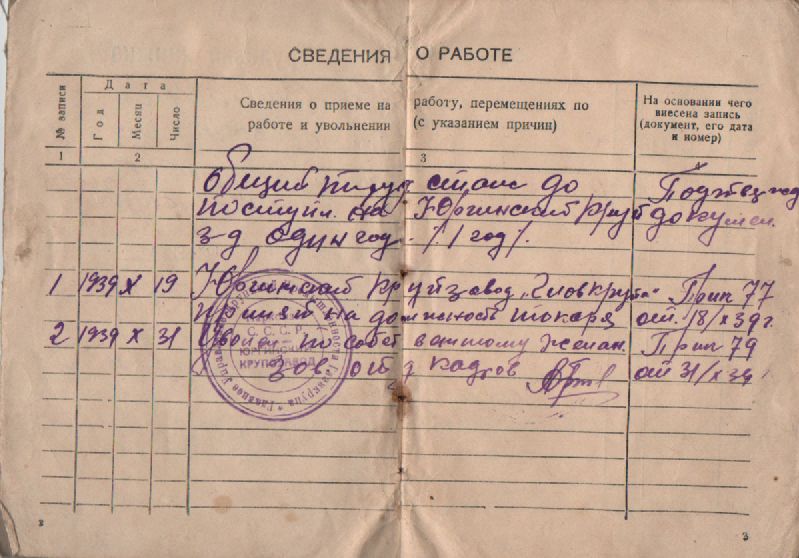 СВЕДЕНИЯ О РАБОТЕ
№ записи
Дата
Год
Месяц
Число
Сведения о приеме на работу, перемещениях по
работе и увольнении (с указанием причин)
На основании чего
внесена запись
(документ, его дата
и номер)
1 2 3 4
Общий труд. стаж до Подтвержд
поступл. на Юргинский круп докумен.
з-д один год. /1 год/.
1 1939 X 19 Юргинский крупзавод „Главкрупа“ Прик 77
принят на должность токаря от. 18/X 39г.
2 1939 X 31 Уволен по собственному желан. Прик 79
Зав. отд кадров от 31/X 39г
С.С.С.Р.
ЮРГИНСКИЙ
КРУПОЗАВОД
Главкрупа
2
3